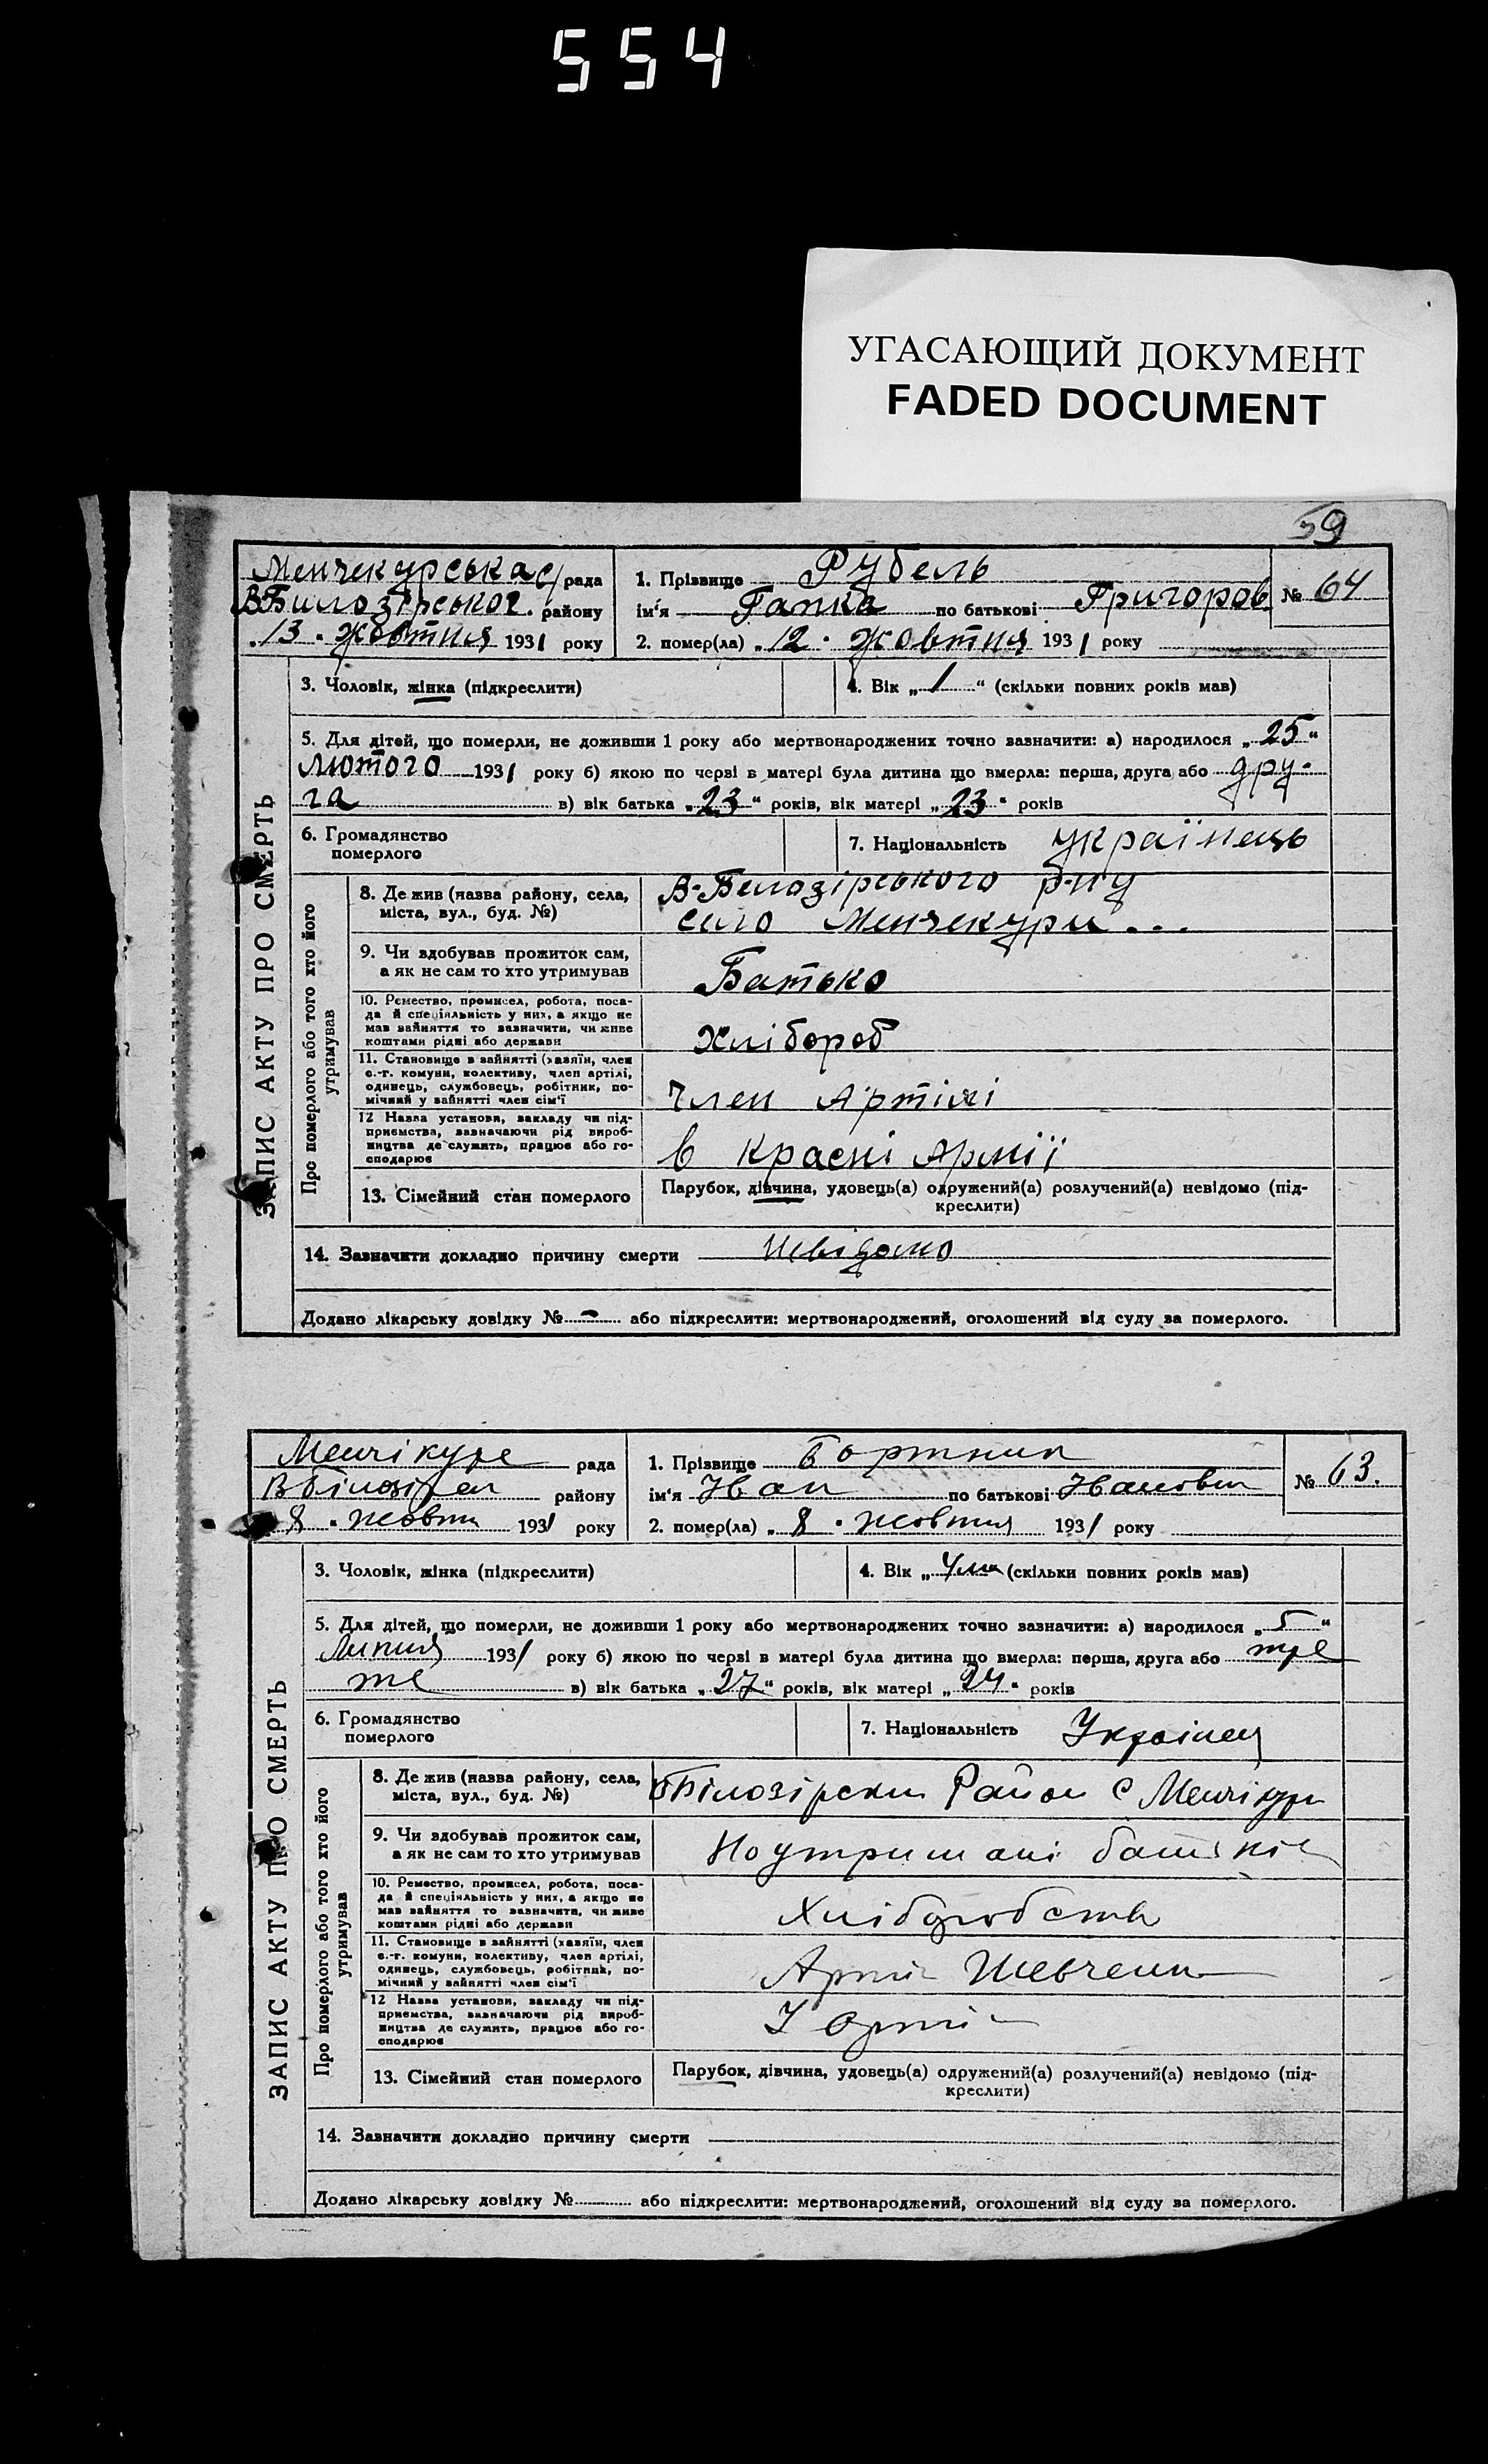 554
УГАСАЮЩИЙ ДОКУМЕНТ
FADED DOCUMENT
59
ЗАПИС АКТУ ПРО СМЕРТЬ
Менчекурська с/рада
В-Билозірського району
„13" Жовтня 1931 року
1. Прізвище Рубель
ім‘я Гапка по батькові Григоров
№ 64
2. помер(ла) „12" Жовтня 1931 року
3. Чоловік, жінка (підкреслити)
4. Вік „1“ (скільки повних років мав)
5. Для дітей, що померли, не доживши 1 року або мертвонароджених точно зазначити: а) народилося „25“
лютого 1931 року б) якою по черзі в матері була дитина що вмерла: перша, друга або дру-
га в) вік батька „23“ років, вік матері „23“ років
6. Громадянство
померлого
7. Національність українець
Про померлого або того хто його
утримував
8. Де жив (назва району, села,
міста, вул., буд. №)
В-Билозірського р-ну
село Менчекури...
9. Чи здобував прожиток сам,
а як не сам то хто утримував
Батько
10. Ремество, промисел, робота, поса-
да й спеціяльність у них, а якщо не
мав зайняття то зазначити, чи живе
коштами рідні або держави
Хлібороб
11. Становище в зайнятті (хазяїн, член
с.-г. комуни, колективу, член артілі,
одинець, службовець, робітник, по-
мічний у зайнятті член сім‘ї
Член Артілі
12 Назва установи, закладу чи під-
приємства, зазначаючи рід вироб-
ництва де служить, працює або го-
сподарює
в Красні Армії
13. Сімейний стан померлого
Парубок, дівчина, удовець(а) одружений(а) розлучений(а) невідомо (під-
креслити)
14. Зазначити докладно причину смерти Невідомо
Додано лікарську довідку № – або підкреслити: мертвонароджений, оголошений від суду за померлого.
ЗАПИС АКТУ ПРО СМЕРТЬ
Менчікуре рада
району
8 " жовтн 1931 року
1. Прізвище
ім‘я Іван по батькові Іванович
№ 63.
2. помер(ла) „8" жовтня 1931 року
3. Чоловік, жінка (підкреслити)
4. Вік „ (скільки повних років мав)
5. Для дітей, що померли, не доживши 1 року або мертвонароджених точно зазначити: а) народилося „5“
Липня 1931 року б) якою по черзі в матері була дитина що вмерла: перша, друга або тре
тє в) вік батька „27“ років, вік матері „24“ років
6. Громадянство
померлого
7. Національність Українец
Про померлого або того хто його
утримував
8. Де жив (назва району, села,
міста, вул., буд. №)
Район с Менчікур
9. Чи здобував прожиток сам,
а як не сам то хто утримував
10. Ремество, промисел, робота, поса-
да й спеціяльність у них, а якщо не
мав зайняття то зазначити, чи живе
коштами рідні або держави
11. Становище в зайнятті (хазяїн, член
с.-г. комуни, колективу, член артілі,
одинець, службовець, робітник, по-
мічний у зайнятті член сім‘ї
12 Назва установи, закладу чи під-
приємства, зазначаючи рід вироб-
ництва де служить, працює або го-
сподарює
13. Сімейний стан померлого
Парубок, дівчина, удовець(а) одружений(а) розлучений(а) невідомо (під-
креслити)
14. Зазначити докладно причину смерти
Додано лікарську довідку № або підкреслити: мертвонароджений, оголошений від суду за померлого.